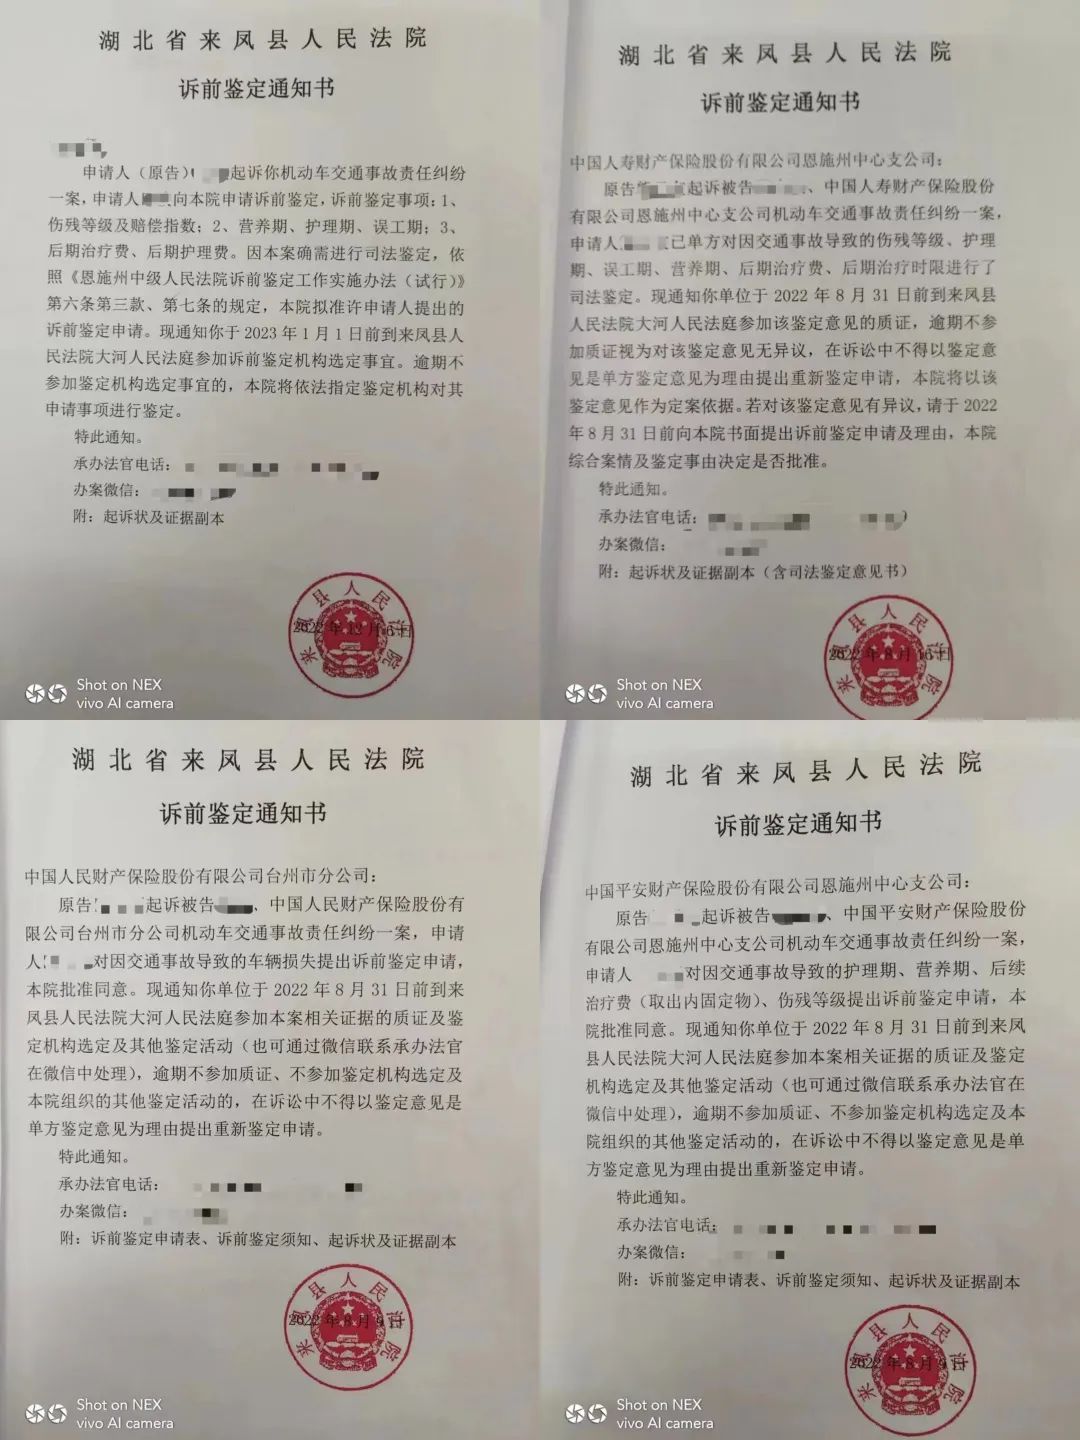 湖北省来凤县人民法院
诉前鉴定通知书
申请人（原告）起诉你机动车交通事故责任纠纷
一案，申请人向本院申请诉前鉴定，诉前鉴定事项：1、
伤残等级及赔偿指数；2、营养期、护理期、误工期；3、
后期治疗费、后期护理费。因本案确需进行司法鉴定，依
照《恩施州中级人民法院诉前鉴定工作实施办法（试行）》
第六条第三款、第七条的规定，本院拟准许申请人提出的
诉前鉴定申请。现通知你于2023年1月1日前到来凤县人
民法院大河人民法庭参加诉前鉴定机构选定事宜。逾期不
参加鉴定机构选定事宜的，本院将依法指定鉴定机构对其
申请事项进行鉴定。
特此通知。
承办法官电话：
办案微信：
附：起诉状及证据副本
来凤县人民法院
2022年12月6日
Shot on NEX
vivo AI camera
湖北省来凤县人民法院
诉前鉴定通知书
中国人寿财产保险股份有限公司恩施州中心支公司：
原告起诉被告、中国人寿财产保险股份
有限公司恩施州中心支公司机动车交通事故责任纠纷一案，
申请人已单方对因交通事故导致的伤残等级、护理
期、误工期、营养期、后期治疗费、后期治疗时限进行了
司法鉴定。现通知你单位于2022年8月31日前到来凤县
人民法院大河人民法庭参加该鉴定意见的质证，逾期不参
加质证视为对该鉴定意见无异议，在诉讼中不得以鉴定意
见是单方鉴定意见为理由提出重新鉴定申请，本院将以该
鉴定意见作为定案依据。若对该鉴定意见有异议，请于2022
年8月31日前向本院书面提出诉前鉴定申请及理由，本院
综合案情及鉴定事由决定是否批准。
特此通知。
承办法官电话：
办案微信：
附：起诉状及证据副本（含司法鉴定意见书）
来凤县人民法院
2022年8月16日
Shot on NEX
vivo AI camera
湖北省来凤县人民法院
诉前鉴定通知书
中国人民财产保险股份有限公司台州市分公司：
原告起诉被告、中国人民财产保险股份有
限公司台州市分公司机动车交通事故责任纠纷一案，申请
人对因交通事故导致的车辆损失提出诉前鉴定申请，
本院批准同意。现通知你单位于2022年8月31日前到来
凤县人民法院大河人民法庭参加本案相关证据的质证及鉴
定机构选定及其他鉴定活动（也可通过微信联系承办法官
在微信中处理），逾期不参加质证、不参加鉴定机构选定及
本院组织的其他鉴定活动的，在诉讼中不得以鉴定意见是
单方鉴定意见为理由提出重新鉴定申请。
特此通知。
承办法官电话：
办案微信：
附：诉前鉴定申请表、诉前鉴定须知、起诉状及证据副本
来凤县人民法院
2022年8月9日
Shot on NEX
vivo AI camera
湖北省来凤县人民法院
诉前鉴定通知书
中国平安财产保险股份有限公司恩施州中心支公司：
原告起诉被告、中国平安财产保险股份
有限公司恩施州中心支公司机动车交通事故责任纠纷一案，
申请人对因交通事故导致的护理期、营养期、后续
治疗费（取出内固定物）、伤残等级提出诉前鉴定申请，本
院批准同意。现通知你单位于2022年8月31日前到来凤
县人民法院大河人民法庭参加本案相关证据的质证及鉴定
机构选定及其他鉴定活动（也可通过微信联系承办法官在
微信中处理），逾期不参加质证、不参加鉴定机构选定及本
院组织的其他鉴定活动的，在诉讼中不得以鉴定意见是单
方鉴定意见为理由提出重新鉴定申请。
特此通知。
承办法官电话：
办案微信：
附：诉前鉴定申请表、诉前鉴定须知、起诉状及证据副本
来凤县人民法院
2022年8月9日
Shot on NEX
vivo AI camera